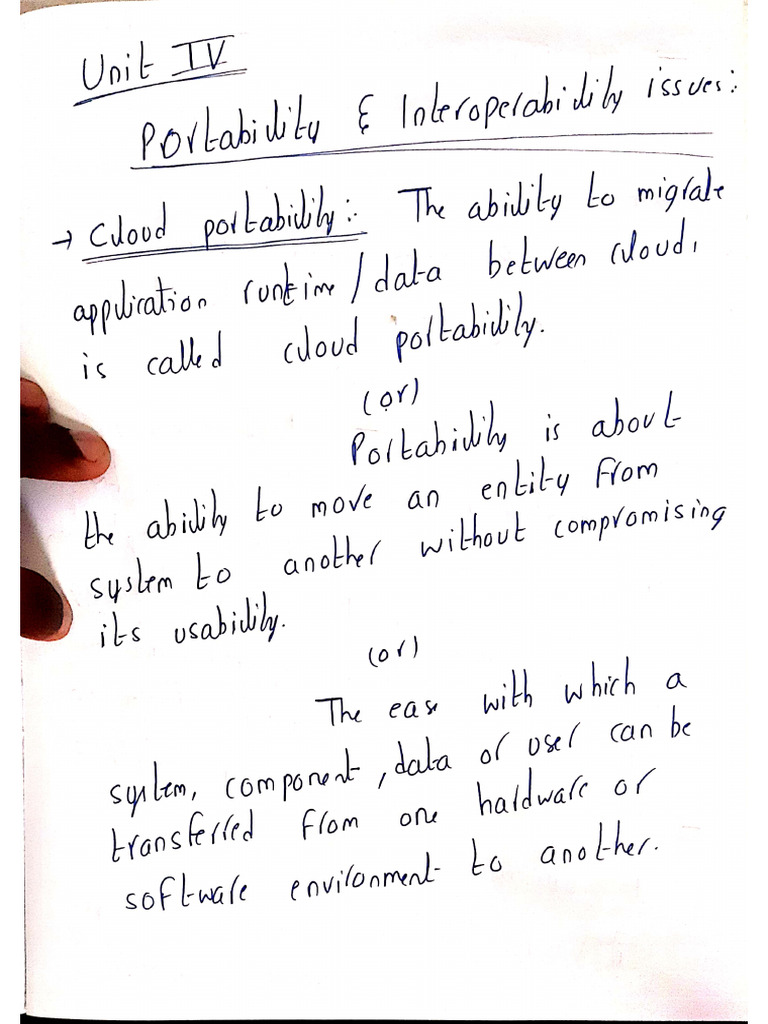 Unit IV
Portability & Interoperability issues:
→ Cloud portability:- The ability to migrate
application runtime/data between cloud,
is called cloud portability.
(or)
Portability is about
the ability to move an entity from
system to another without compromising
its usability.
(or)
The ease with which a
system, component, data or user can be
transferred from one hardware or
software environment to another.